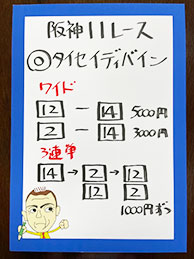 阪神11レース
◎タイセイディバイン
ワイド
12 － 14 5000円
2 － 14 3000円
3連単
14 → 2 → 12
12 2
1000円ずつ